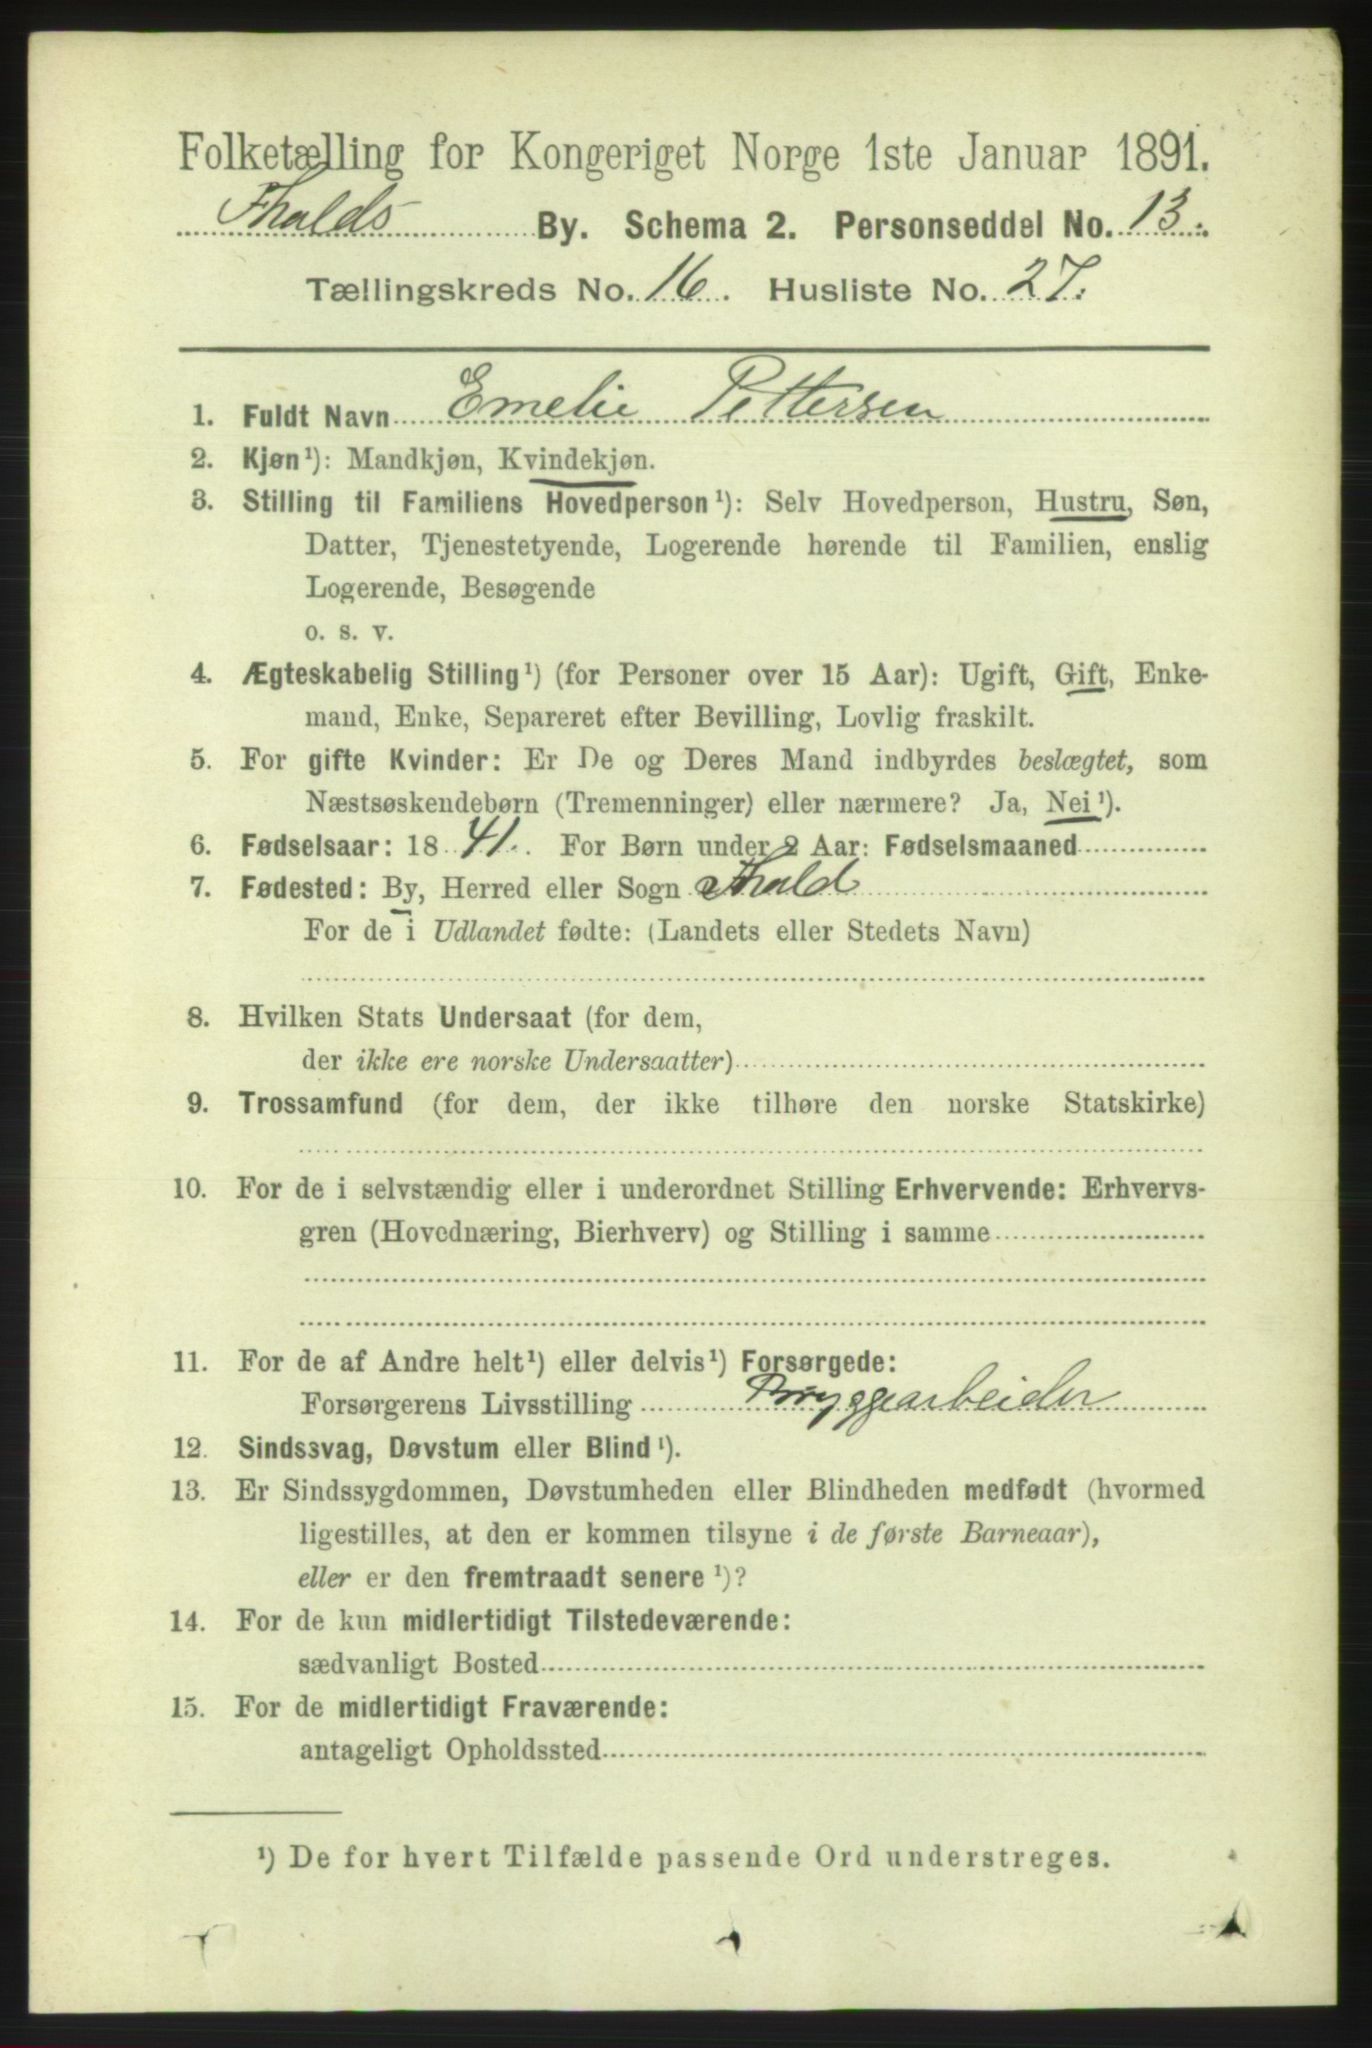 Folketælling for Kongeriget Norge 1ste Januar 1891.
Fhalds By. Schema 2. Personseddel No. 13.
Tællingskreds No. 16. Husliste No. 27.
1. Fuldt Navn Emelie Pettersen
2. Kjøn¹): Mandkjøn, Kvindekjøn.
3. Stilling til Familiens Hovedperson¹): Selv Hovedperson, Hustru, Søn,
Datter, Tjenestetyende, Logerende hørende til Familien, enslig
Logerende, Besøgende
o. s. v.
4. Ægteskabelig Stilling¹) (for Personer over 15 Aar): Ugift, Gift, Enke-
mand, Enke, Separeret efter Bevilling, Lovlig fraskilt.
5. For gifte Kvinder: Er De og Deres Mand indbyrdes beslægtet, som
Næstsøskendebørn (Tremenninger) eller nærmere? Ja, Nei¹).
6. Fødselsaar: 1841. For Børn under 2 Aar: Fødselsmaaned
7. Fødested: By, Herred eller Sogn Fhald
For de i Udlandet fødte: (Landets eller Stedets Navn)
8. Hvilken Stats Undersaat (for dem,
der ikke ere norske Undersaatter)
9. Trossamfund (for dem, der ikke tilhøre den norske Statskirke)
10. For de i selvstændig eller i underordnet Stilling Erhvervende: Erhvervs-
gren (Hovednæring, Bierhverv) og Stilling i samme
11. For de af Andre helt¹) eller delvis¹) Forsørgede:
Forsørgerens Livsstilling Bryggearbeider
12. Sindssvag, Døvstum eller Blind¹).
13. Er Sindssygdommen, Døvstumheden eller Blindheden medfødt (hvormed
ligestilles, at den er kommen tilsyne i de første Barneaar),
eller er den fremtraadt senere¹)?
14. For de kun midlertidigt Tilstedeværende:
sædvanligt Bosted
15. For de midlertidigt Fraværende:
antageligt Opholdssted
¹) De for hvert Tilfælde passende Ord understreges.